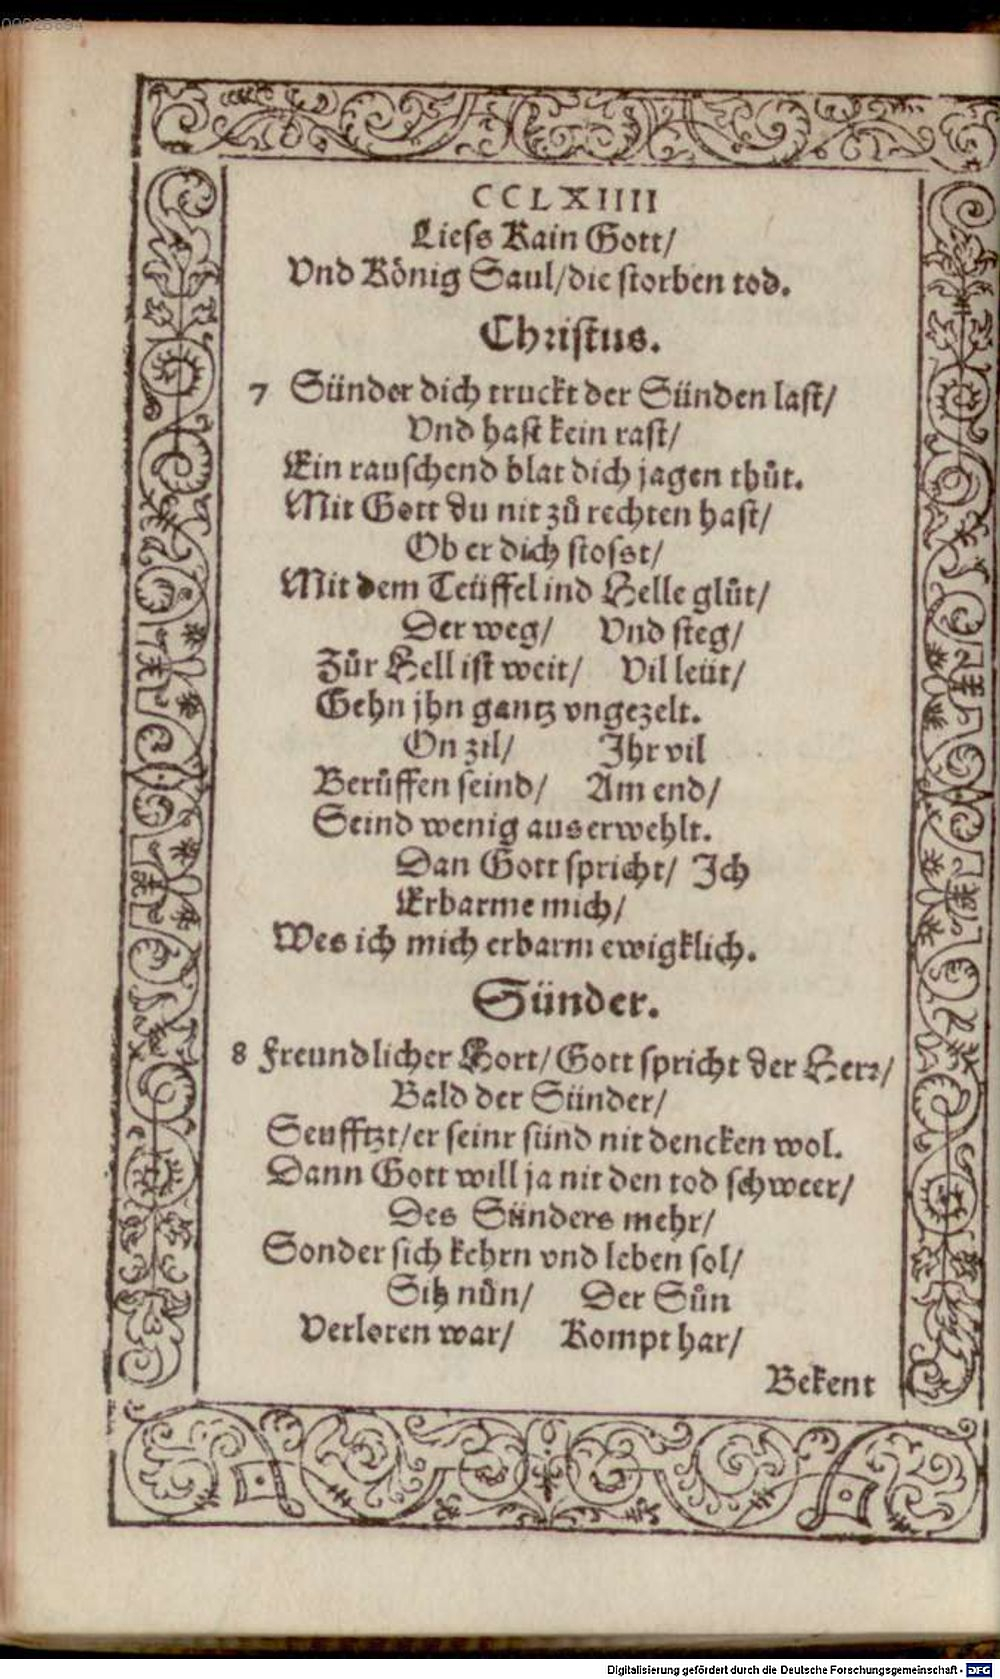 00028694
CCLXIIII
Liess Kain Gott/
Vnd König Saul/die storben tod.
Christus.
7 Sünder dich truckt der Sünden last/
Vnd hast kein rast/
Ein rauschend blat dich jagen thůt.
Mit Gott du nit zů rechten hast/
Ob er dich stosst/
Mit dem Teüffel ind Helle glůt/
Der weg/ Vnd steg/
Zůr Hell ist weit/ Vil leüt/
Gehn jhn gantz vngezelt.
On zil/ Ihr vil
Berůffen seind/ Am end/
Seind wenig auserwehlt.
Dan Gott spricht/ Ich
Erbarme mich/
Wes ich mich erbarm ewigklich.
Sünder.
8 Freundlicher Hort/Gott spricht der Herr/
Bald der Sünder/
Seufftzt/er seinr sünd nit dencken wol.
Dann Gott will ja nit den tod schweer/
Des Sünders mehr/
Sonder sich kehrn vnd leben sol/
Sih nůn/ Der Sůn
Verloren war/ Kompt har/
Bekent
Digitalisierung gefördert durch die Deutsche Forschungsgemeinschaft - DFG